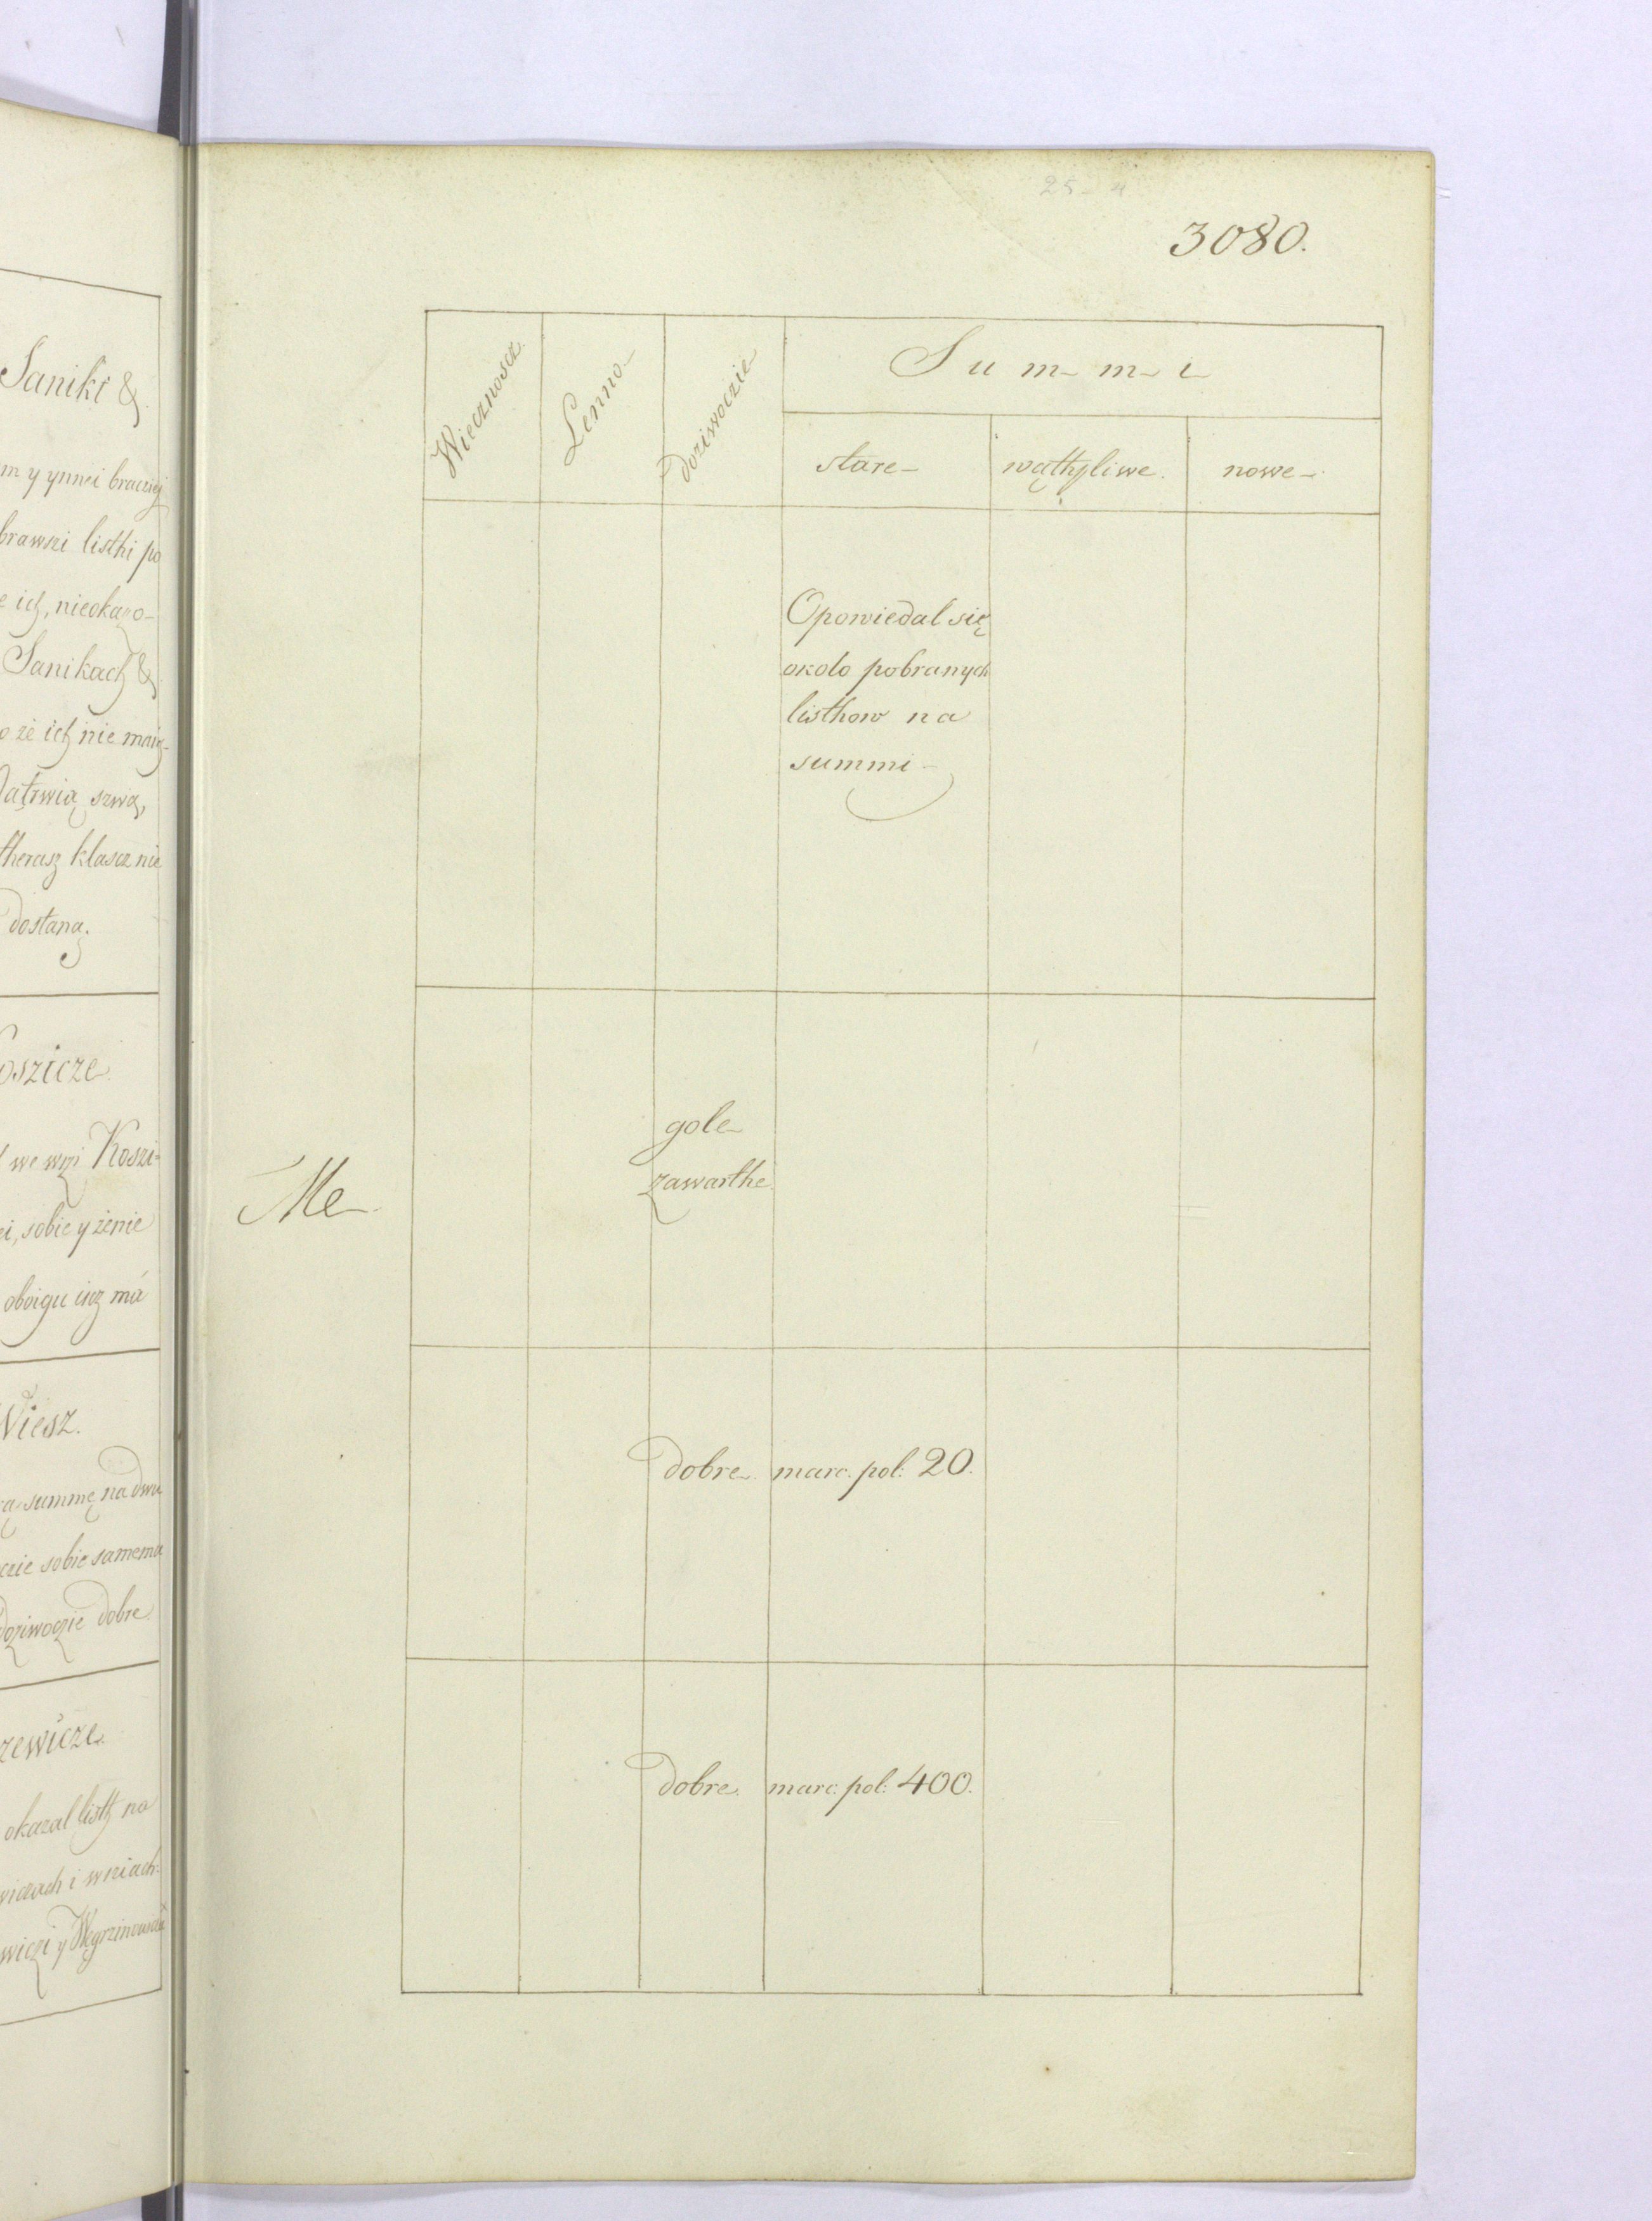 Saniki &
m y ynnei bracziej
brawszi listhi po
e ich, nieokazo-
Sanikach &
o że ich nie maią
therasz klascz nie
dostaną.
oszicze
we wsi Koszi=
ei, sobie y żenie
oboigu iusz má
Wiesz.
ą summę na dwu
czie sobie samemu
doziwoczie dobre
zewicze
okazal listh na
wiczach i w niach
wiczi y Węgrzinow
25 4
3080.
Wiecznoscz. Lenno Doziwoczie Summi
stare wąthpliwe. nowe
Opowiedal się
okolo pobranych
listhow na
summi
gole
zawarthe
Me
dobre marc. pol: 20.
dobre marc. pol: 400.